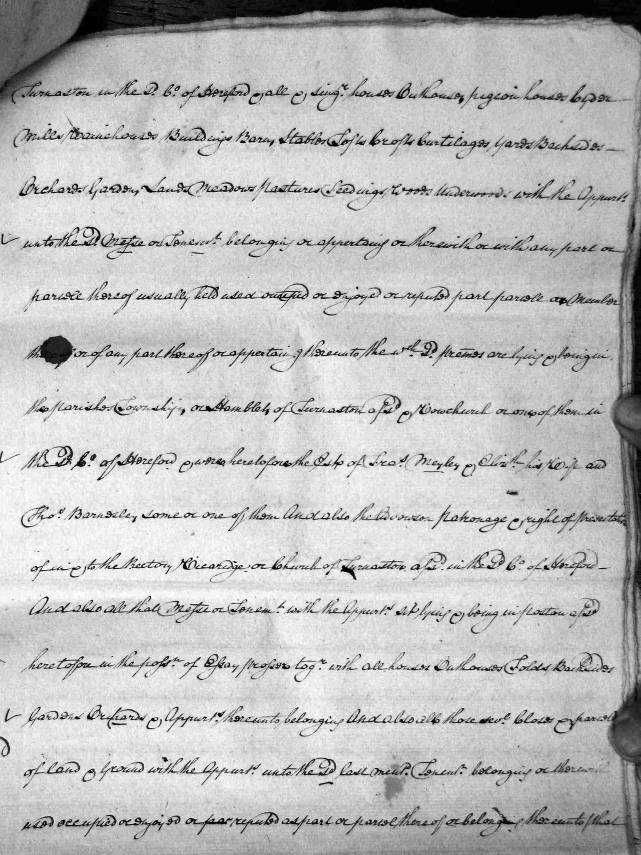 Turnaston in the Sd. Co. of Hereford & all & singr. houses Outhouses pigeon houses Cyder
Mills Wainehouses Buildings Barns Stables Tofts Crofts Curtilages Yards Backsides
Orchards Gardens Lands Meadows Pastures Feedings Woods Underwoods with the Appurts.
unto the Sd. Messe or Tenemt. belonging or appertaing or therewith or with any part or
parcele thereof usually held used occupied or enjoyed or reputed part parcele or Member
or of any part thereof or appertaing thereunto the wch. Sd. premes are lying & being in
the parishes Townships or Hamblets of Turnaston afsd. & Vowchurch or one of them in
the Sd. Co. of Hereford & were heretofore the Este of Fras. Meyley & Elizth. his Wife and
Thos. Barnesley some or one of them And also the Advowson Patronage & right of Presentation
of in & to the Rectory Viccaridge or Church of Turnaston afsd. in the Sd. Co. of Hereford
And also all that Messe or Tenemt. with the Appurts. sit. lying & being in afsd.
heretofore in the possn. of Essay Prosser togr. with all houses Outhouses Folds Backsides
Gardens Orchards & Appurts. thereunto belonging And also all those sevl. Closes & parcels
of land & Ground with the Appurts. unto the Sd. last mentd. Tenemt. belonging or therewith
used occupied or enjoyed or reputed as part or parcel thereof or belonging thereunto that